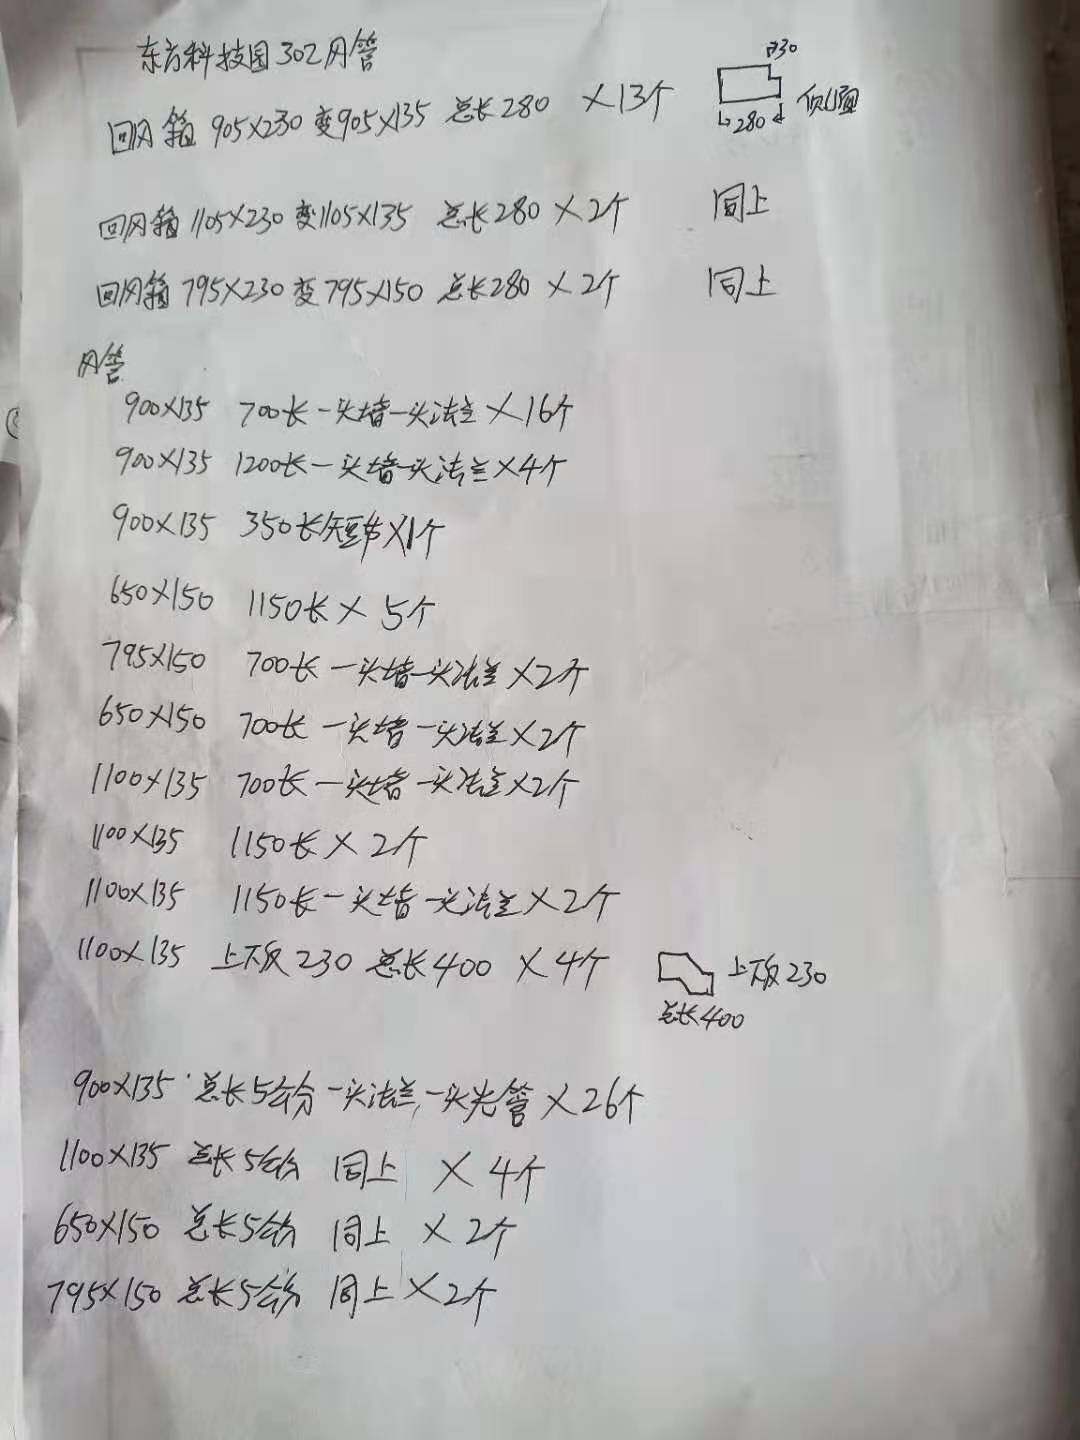 东方科技园302风管
回风箱 905×230 变905×135 总长280 ×13个
30
280 侧面
回风箱 1105×230 变1105×135 总长280 ×2个 同上
回风箱 795×230 变795×150 总长280 ×2个 同上
风管
900×135 700长一头堵一头法兰×16个
900×135 1200长一头堵一头法兰×4个
900×135 350长短节×1个
650×150 1150长× 5个
795×150 700长一头堵一头法兰×2个
650×150 700长 一头堵 一头法兰×2个
1100×135 700长一头堵一头法兰×2个
1100×135 1150长×2个
1100×135 1150长一头堵一头法兰×2个
1100×135 上下返230 总长400 ×4个
上下返230
总长400
900×135 总长5公分 一头法兰,一头光管×26个
1100×135 总长5公分 同上 ×4个
650×150 总长5公分 同上 ×2个
795×150 总长5公分 同上×2个